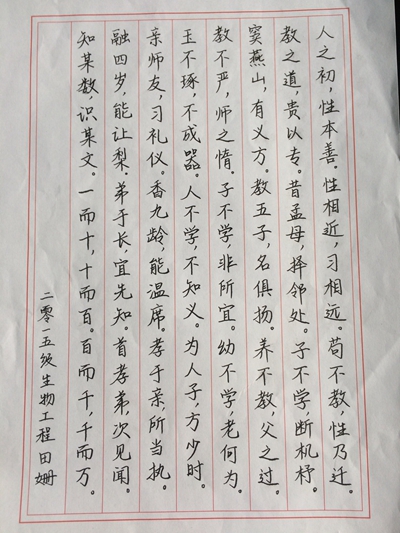 人之初，性本善。性相近，习相远。苟不教，性乃迁。
教之道，贵以专。昔孟母，择邻处。子不学，断机杼。
窦燕山，有义方。教五子，名俱扬。养不教，父之过。
教不严，师之惰。子不学，非所宜。幼不学，老何为。
玉不琢，不成器。人不学，不知义。为人子，方少时。
亲师友，习礼仪。香九龄，能温席。孝于亲，所当执。
融四岁，能让梨。弟于长，宜先知。首孝弟，次见闻。
知某数，识某文。一而十，十而百。百而千，千而万。
二零一五级生物工程田姗